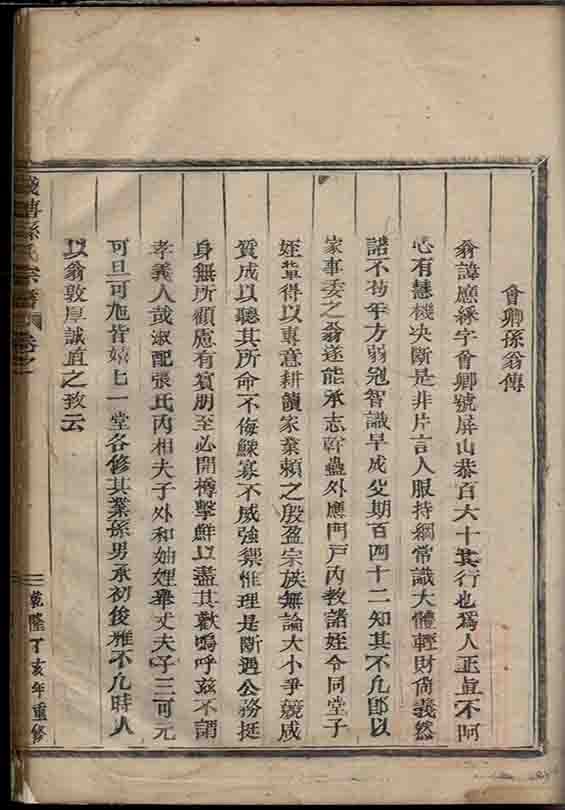 會卿孫翁傳
翁諱應綵字會卿號屏山恭百六十其行也爲人正直不阿
心有慧機决斷是非片言人服持綱常識大體輕財尙義然
諾不苟年方弱冠智識早成父期百四十二知其不凢卽以
家事委之翁遂能承志幹蠱外應門戸内教諸姪令同堂子
姪輩得以專意耕讀家業頼之殷盈宗族無論大小爭競咸
質成以聽其所命不侮鰥寡不威強禦惟理是斷遇公務挺
身無所顧慮有賔朋至必開樽擊鮮以盡其歡嗚呼兹不謂
孝義人哉淑配張氏内相夫子外和妯娌舉丈夫子三可元
可旦可旭皆嬉匕一堂各修其業孫男承初俊雅不凢時人
以翁敦厚誠直之致云
孫氏宗譜
乾隆丁亥年重修